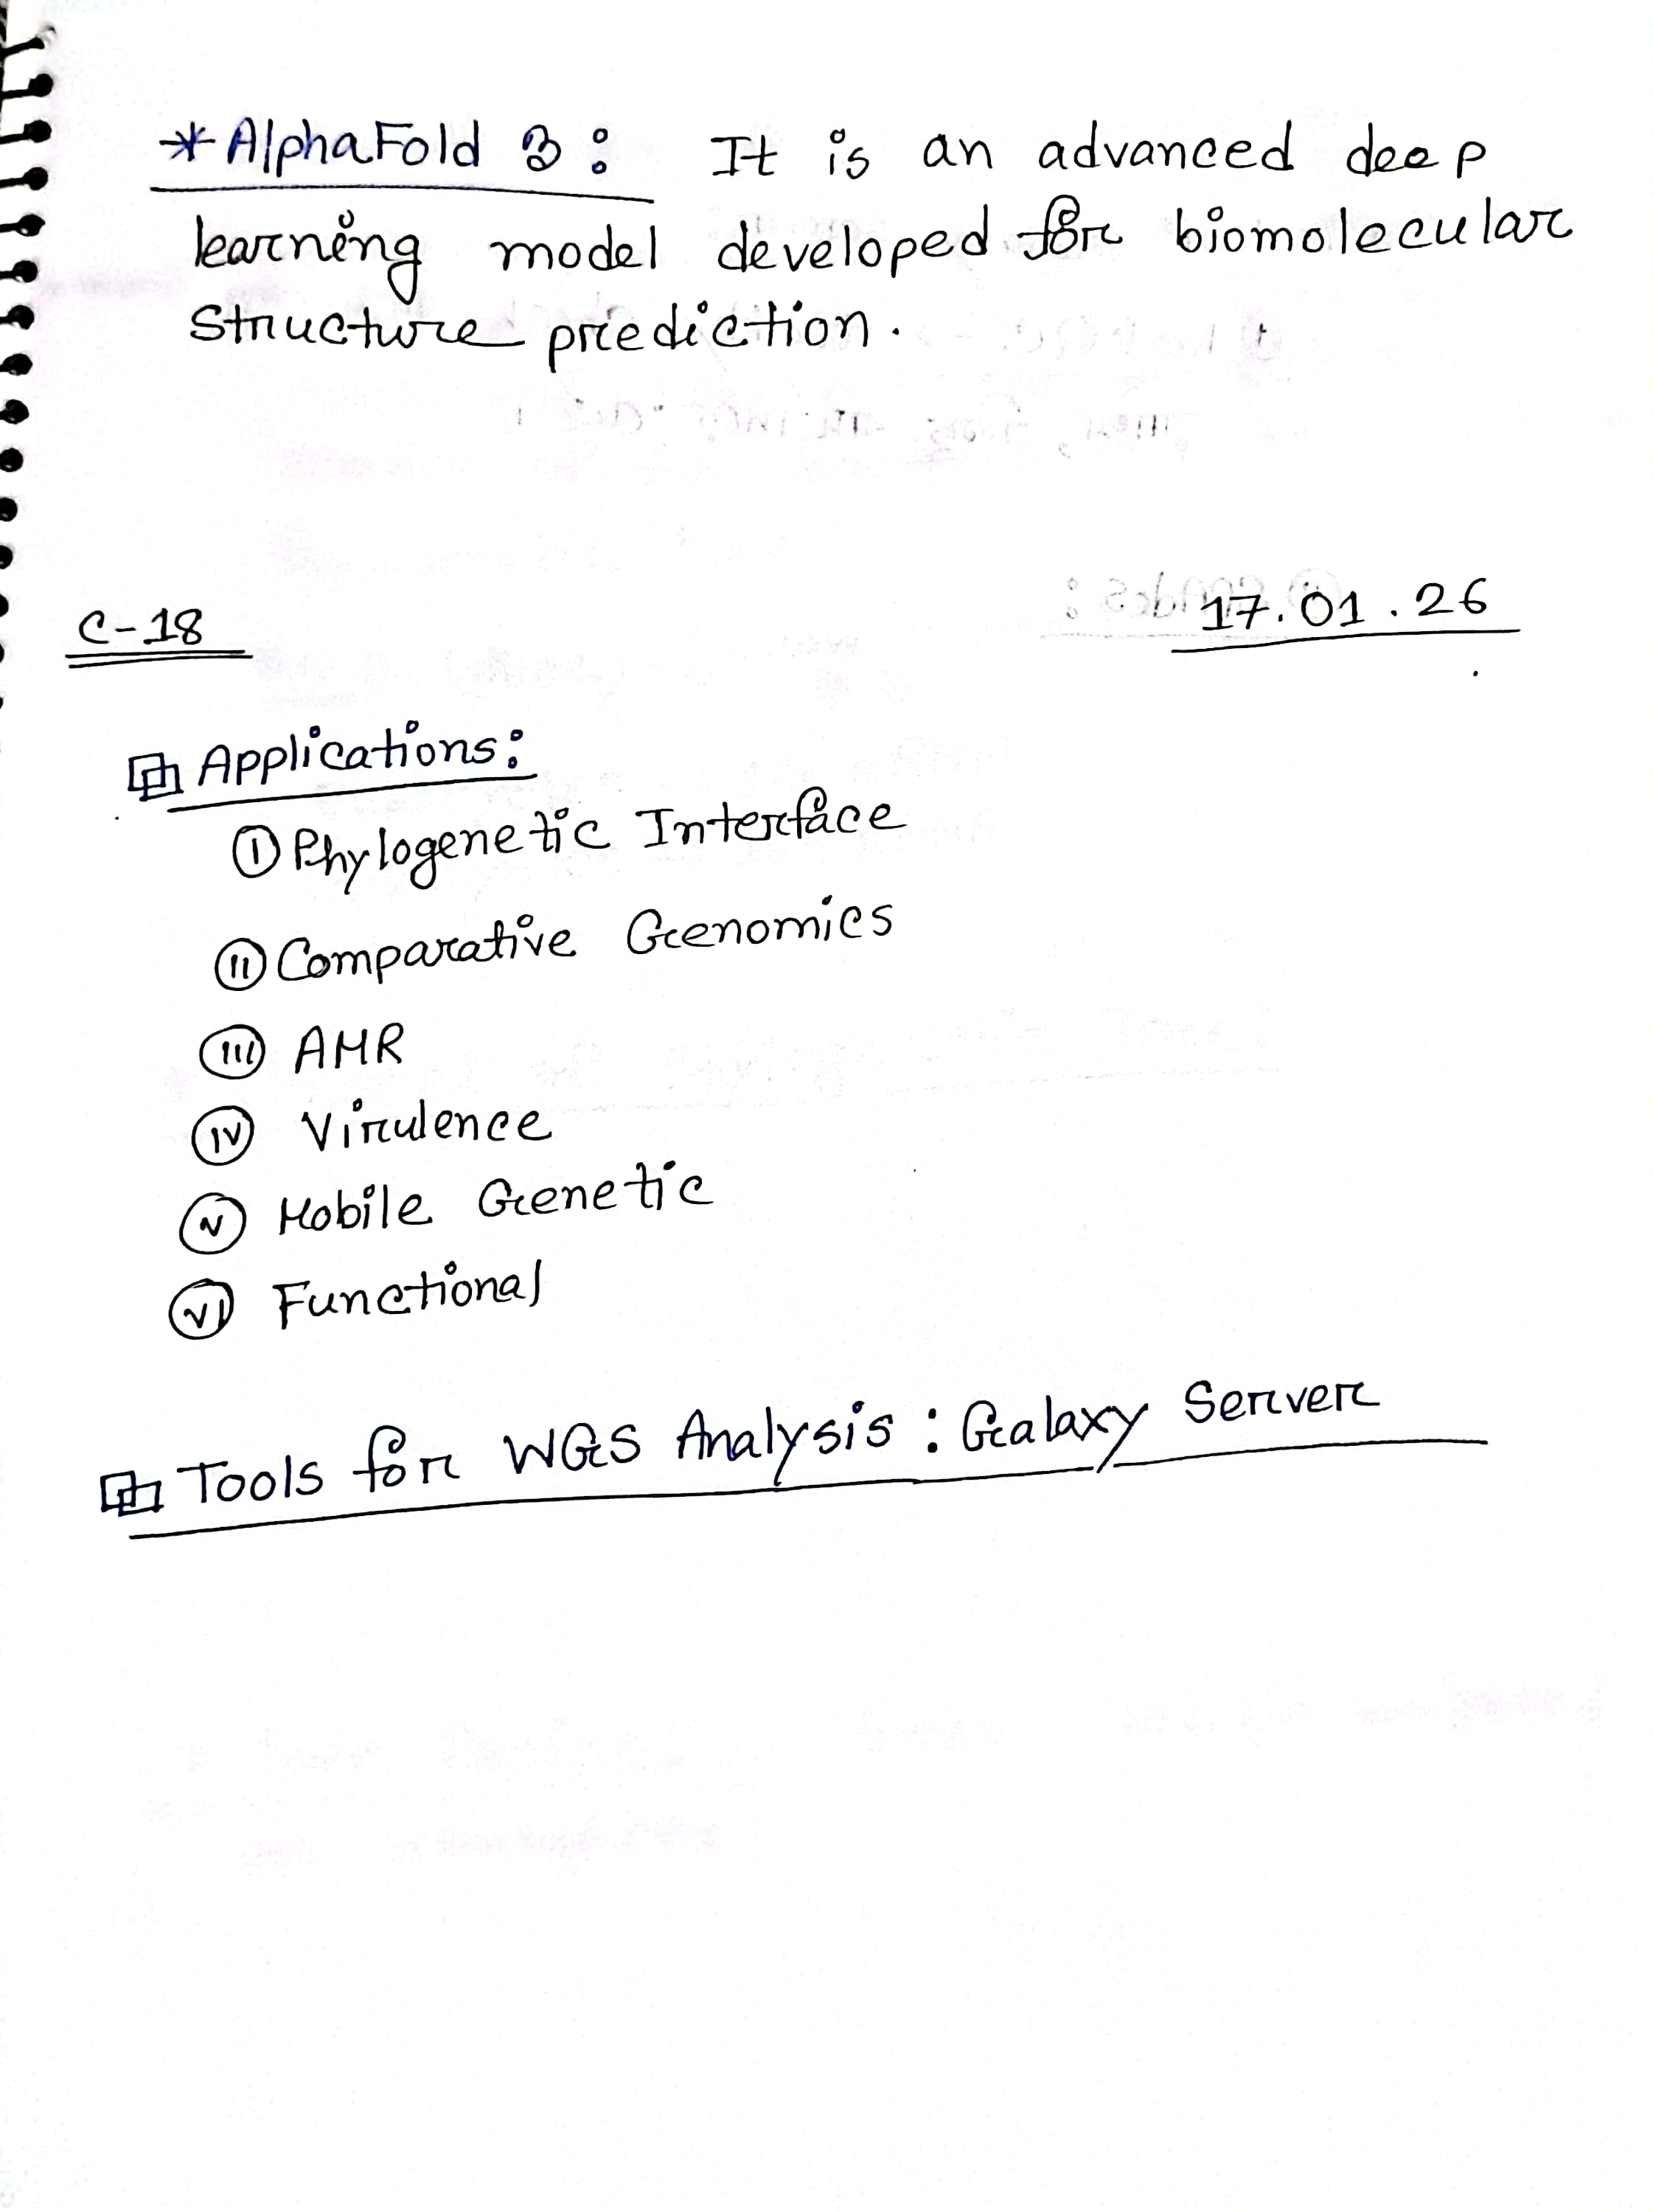 * AlphaFold 3 : It is an advanced deep
learning model developed for biomolecular
structure prediction.
C-18
17.01.26
Applications:
(I) Phylogenetic Interface
(II) Comparative Genomics
(III) AMR
(IV) Virulence
(V) Mobile Genetic
(VI) Functional
Tools for WGS Analysis : Galaxy Server